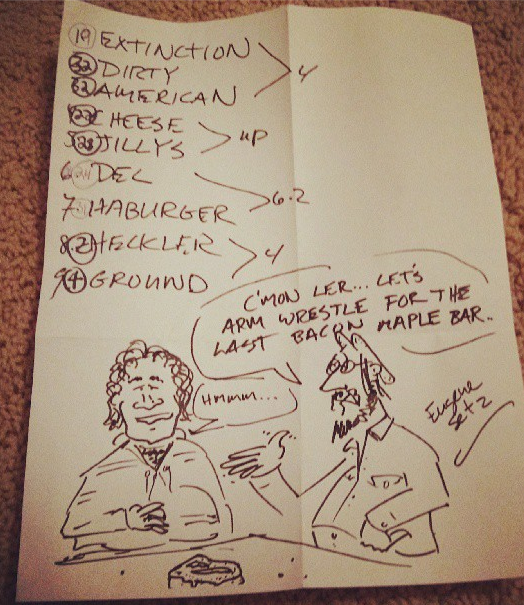 19 EXTINCTION
DIRTY
AMERICAN
4
CHEESE
JILLYS
up
6. DEL
7. HABURGER
6.2
8. HECKLER
9. GROUND
4
C'MON LER... LET'S
ARM WRESTLE FOR THE
LAST BACON MAPLE BAR..
HMMM...
Eugene
set 2